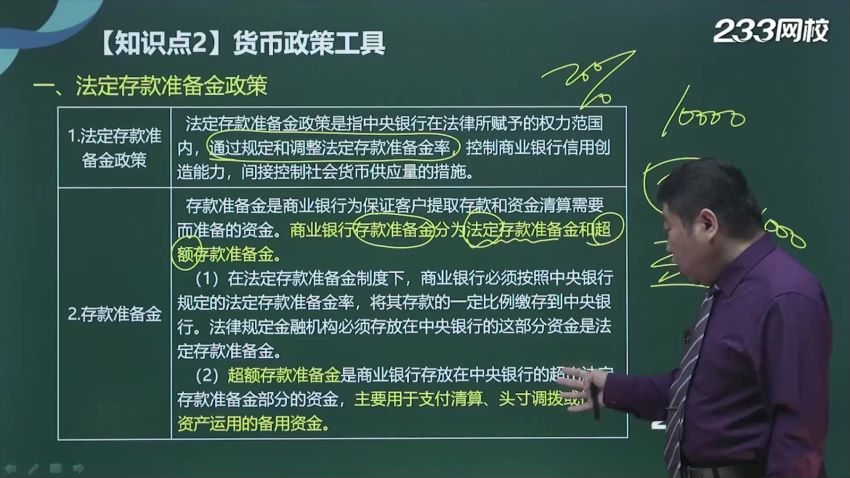 233网校
【知识点2】货币政策工具
一、法定存款准备金政策
20%
10000
1.法定存款准
备金政策
法定存款准备金政策是指中央银行在法律所赋予的权力范围
内，通过规定和调整法定存款准备金率，控制商业银行信用创
造能力，间接控制社会货币供应量的措施。
2.存款准备金
存款准备金是商业银行为保证客户提取存款和资金清算需要
而准备的资金。商业银行存款准备金分为法定存款准备金和超
额存款准备金。
（1）在法定存款准备金制度下，商业银行必须按照中央银行
规定的法定存款准备金率，将其存款的一定比例缴存到中央银
行。法律规定金融机构必须存放在中央银行的这部分资金是法
定存款准备金。
（2）超额存款准备金是商业银行存放在中央银行的超出法定
存款准备金部分的资金，主要用于支付清算、头寸调拨或
资产运用的备用资金。